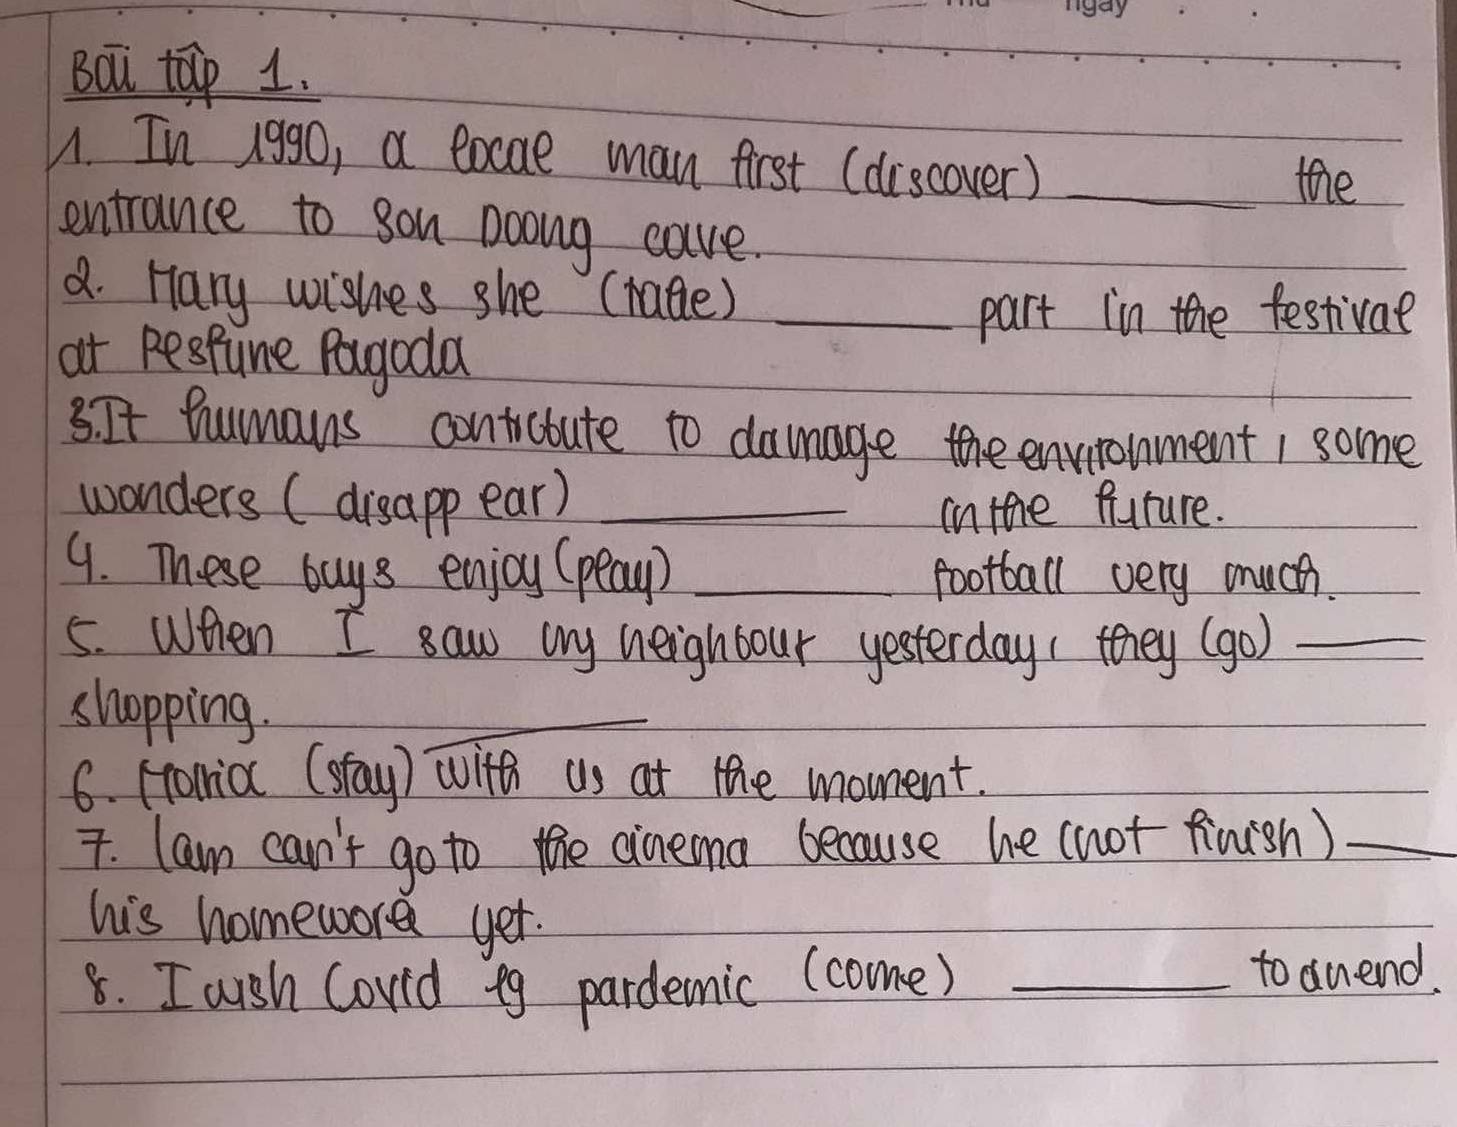 ngày
Bài tập 1.
1. In 1990, a local man first (discover) ________ the
entrance to Son Doong cave.
2. Mary wishes she (take) ________ part in the festival
at Perfune Pagoda
3. If humans contribute to damage the environment, some
wonders (disappear) ________ in the future.
4. These buys enjoy (play) ________ football very much.
5. When I saw my neighbour yesterday, they (go) ________
shopping.
6. Maria (stay) ________ with us at the moment.
7. Lam can't go to the cinema because he (not finish) ________
his homework yet.
8. I wish Covid 19 pardemic (come) ________ to an end.